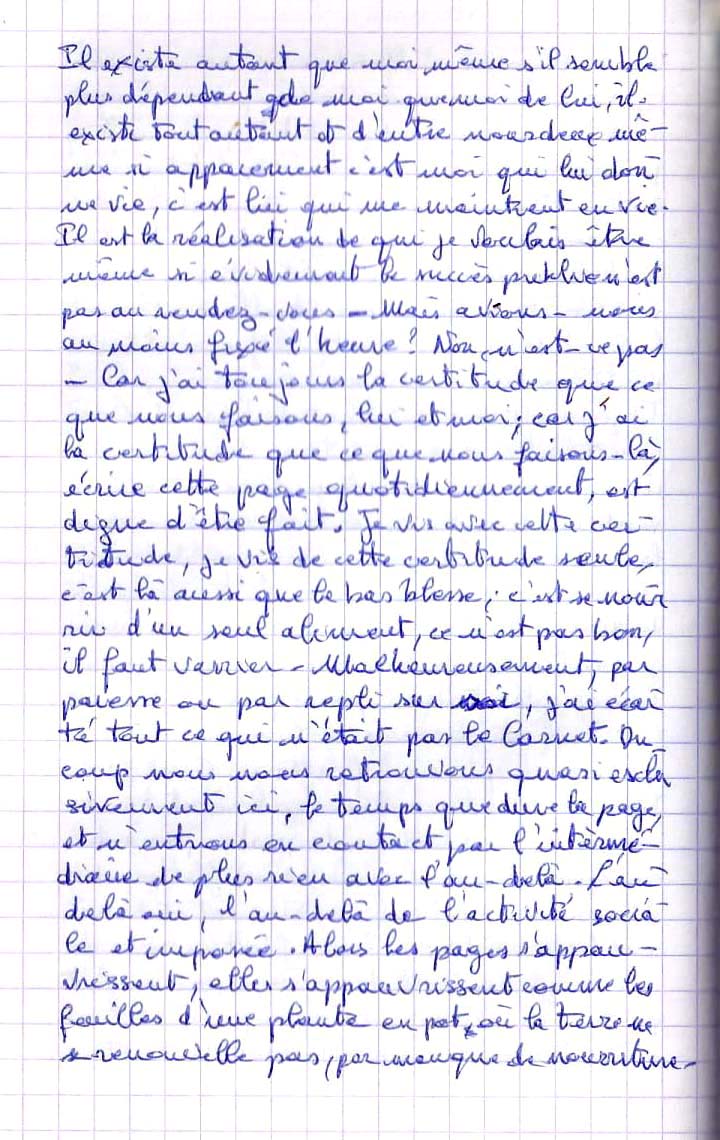 Il existe autant que moi, même s'il semble
plus dépendant de moi que moi de lui, il
existe tout autant et d'entre nous deux mê-
me si apparemment c'est moi qui lui don
ne vie, c'est lui qui me maintient en vie.
Il est la réalisation de qui je voulais être
même si évidemment le succès n'est
pas au rendez-vous - Mais avions-nous
au moins fixé l'heure ? Non, n'est-ce pas
- Car j'ai toujours la certitude que ce
que nous faisons, lui et moi, car j'ai
la certitude que ce que nous faisons-là,
écrire cette page quotidiennement, est
digne d'être fait. Je vis avec cette cer-
titude, je vis de cette certitude seule,
c'est là aussi que le bas blesse, c'est se nour
rir d'un seul aliment, ce n'est pas bon,
il faut varrier - Malheureusement, par
paresse ou par repli sur soi, j'ai écar
té tout ce qui n'était pas le Carnet. Du
coup nous nous retrouvons quasi exclu
sivement ici, le temps que dure la page,
et n'entrons en contact par l'intermé-
diaire de plus rien avec l'au-delà. L'au
delà oui, l'au-delà de l'activité socia
le et imposée. Alors les pages s'appau-
vrissent, elles s'appauvrissent comme les
feuilles d'une plante en pot, où la terre ne
se renouvelle pas, par manque de nourriture -